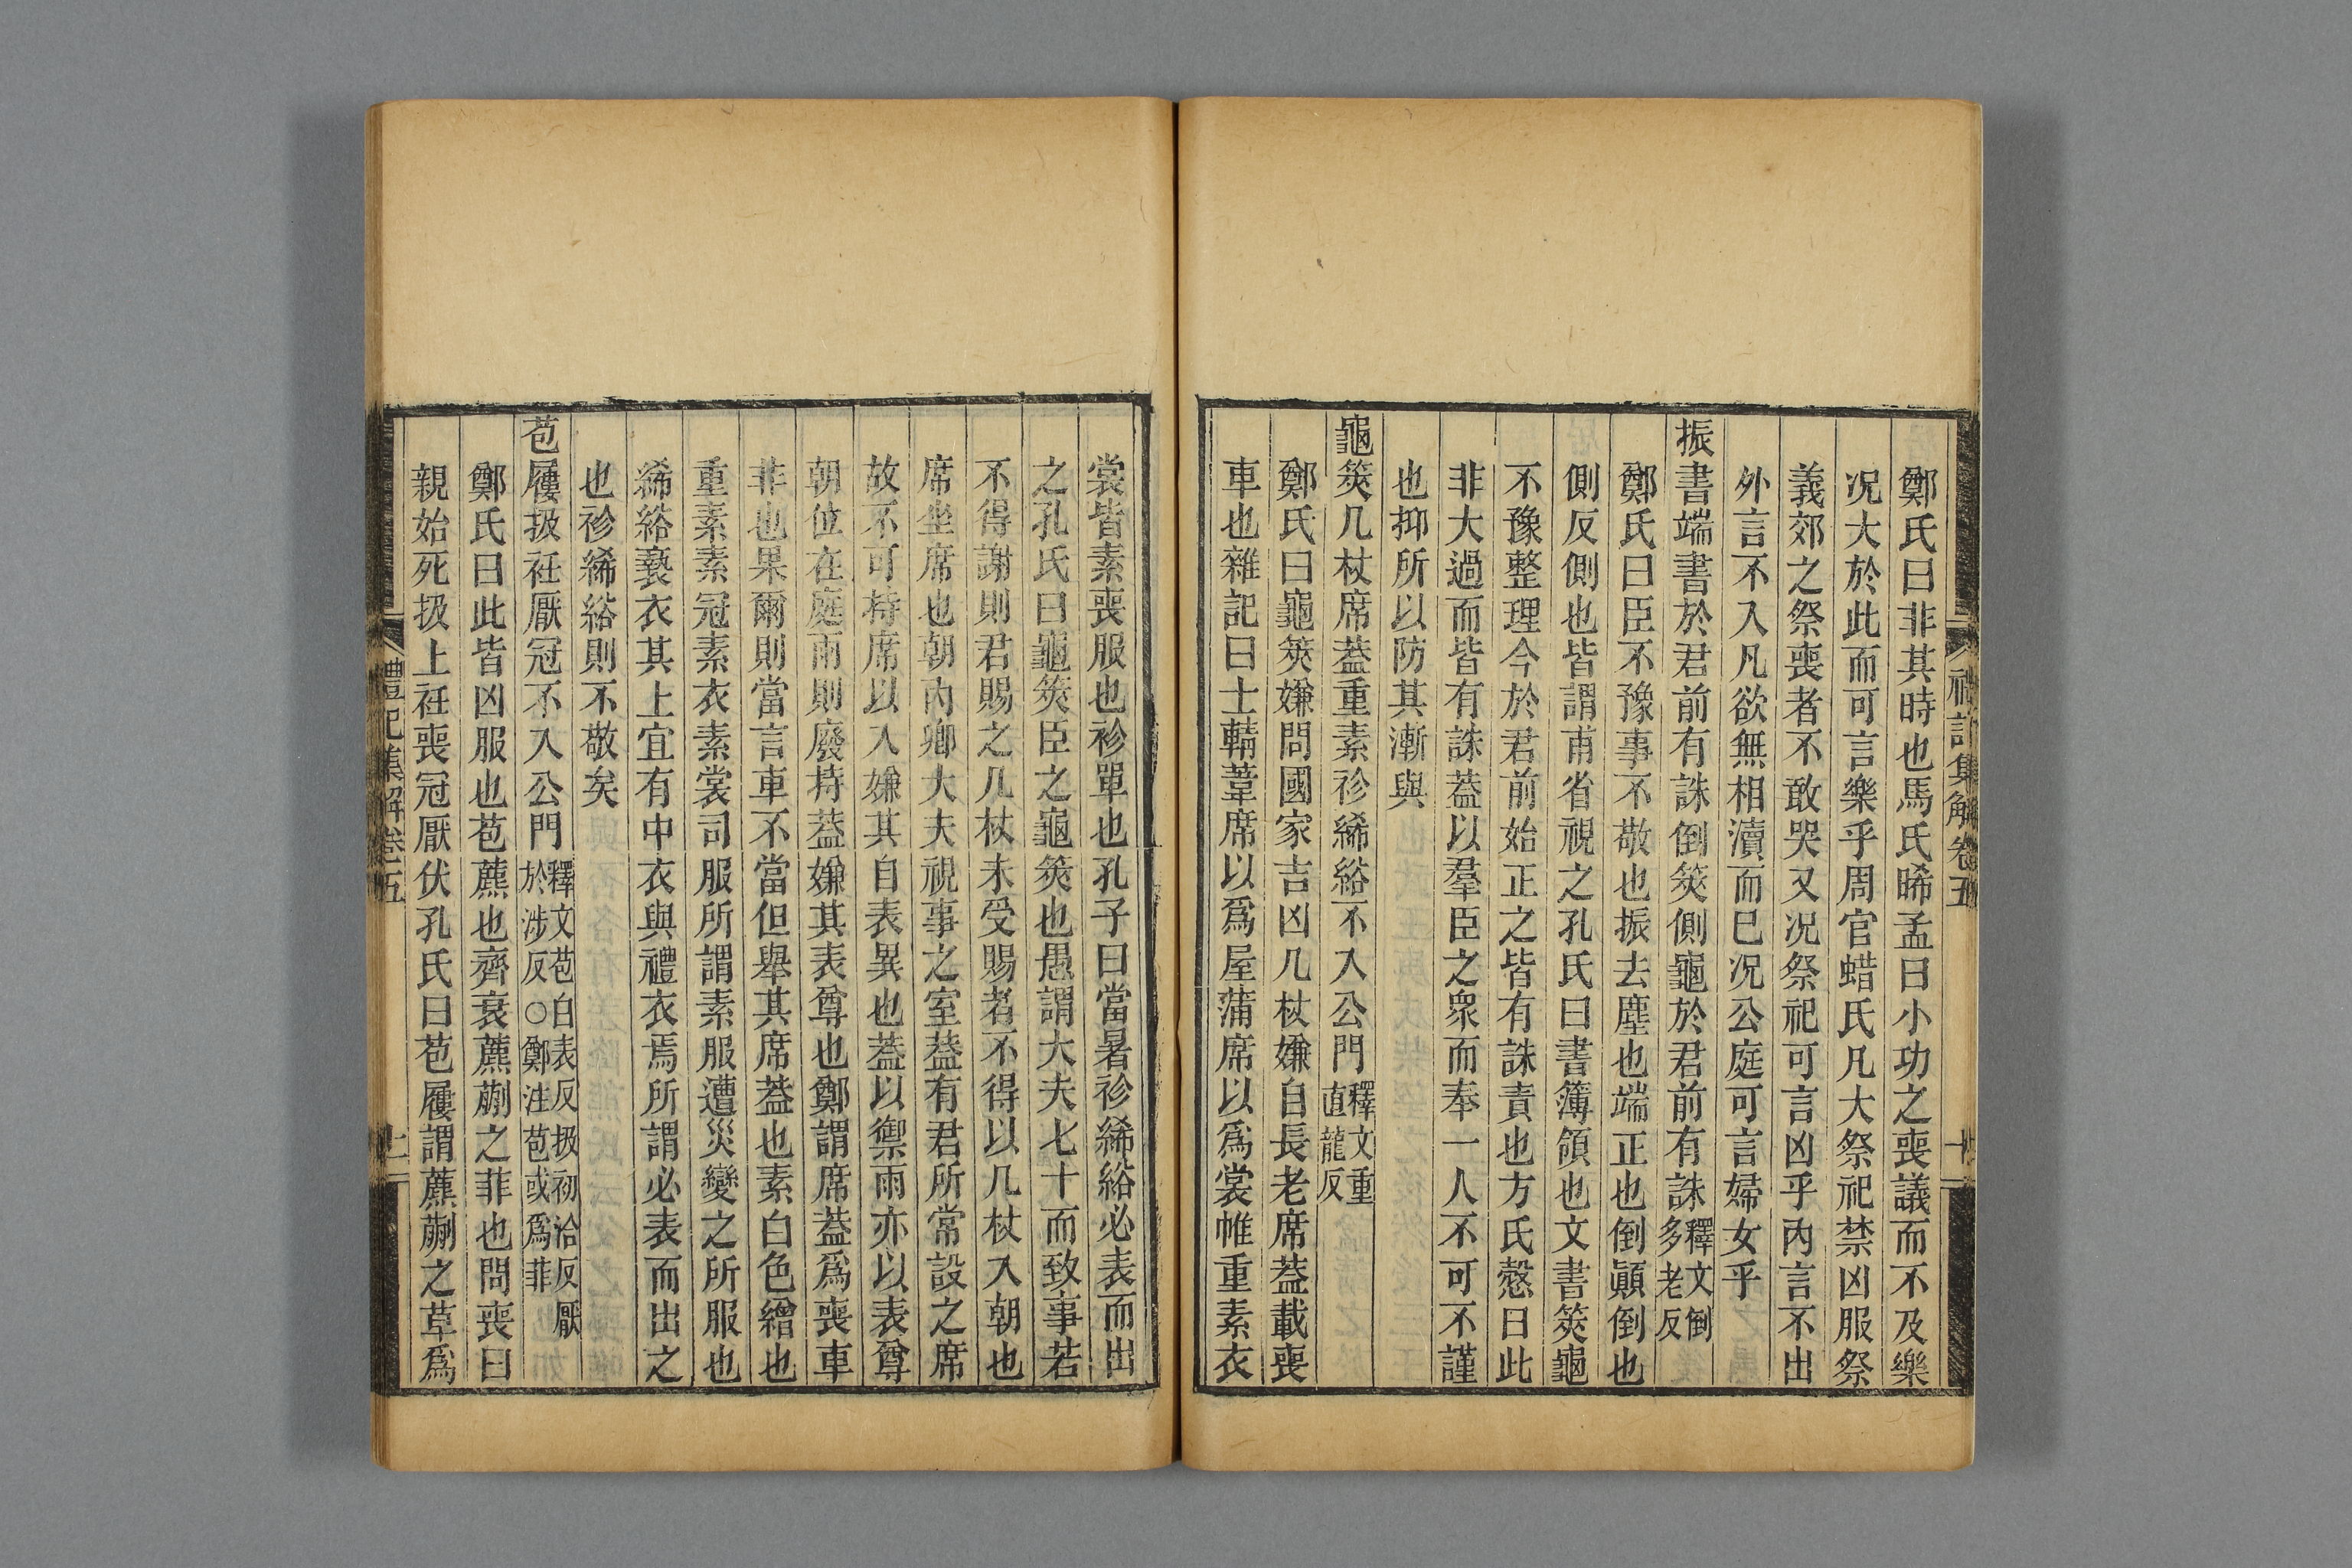 鄭氏曰非其時也馬氏晞孟曰小功之喪議而不及樂
况大於此而可言樂乎周官蜡氏凡大祭祀禁凶服祭
義郊之祭喪者不敢哭又况祭祀可言凶乎內言不出
外言不入凡欲無相瀆而已况公庭可言婦女乎
振書端書於君前有誅倒筴側龜於君前有誅釋文倒多老反
鄭氏曰臣不豫事不敬也振去塵也端正也倒顚倒也
側反側也皆謂甫省視之孔氏曰書簿領也文書筴龜
不豫整理今於君前始正之皆有誅責也方氏慤曰此
非大過而皆有誅蓋以羣臣之衆而奉一人不可不謹
也抑所以防其漸與
龜筴几杖席蓋重素袗絺綌不入公門釋文重直龍反
鄭氏曰龜筴嫌問國家吉凶几杖嫌自長老席蓋載喪
車也雜記曰士輤葦席以爲屋蒲席以爲裳帷重素衣
禮記集解卷五
裳皆素喪服也袗單也孔子曰當暑袗絺綌必表而出
之孔氏曰龜筴臣之龜筴也愚謂大夫七十而致事若
不得謝則君賜之几杖未受賜者不得以几杖入朝也
席坐席也朝內卿大夫視事之室葢有君所常設之席
故不可持席以入嫌其自表異也蓋以禦雨亦以表尊
朝位在庭雨則廢持葢嫌其表尊也鄭謂席蓋爲喪車
非也果爾則當言車不當但舉其席葢也素白色繒也
重素素冠素衣素裳司服所謂素服遭災變之所服也
絺綌褻衣其上宜有中衣與禮衣焉所謂必表而出之
也袗絺綌則不敬矣
苞屨扱衽厭冠不入公門釋文苞白表反扱初洽反厭於涉反○鄭注苞或爲菲
鄭氏曰此皆凶服也苞藨也齊衰藨蒯之菲也問喪曰
親始死扱上衽喪冠厭伏孔氏曰苞屨謂藨蒯之草爲
禮記集解卷五